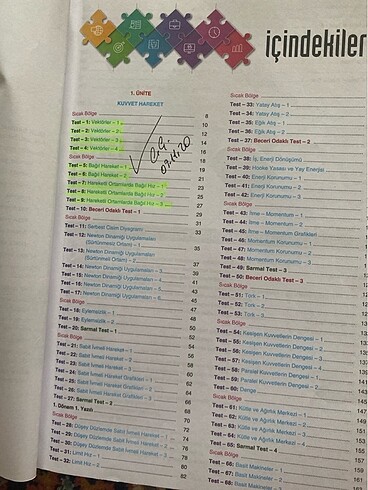 içindekiler
1. ÜNİTE
KUVVET HAREKET
Sıcak Bölge
8
Test – 1: Vektörler – 1
10
Test – 2: Vektörler – 2
12
Test – 3: Vektörler – 3
14
Test – 4: Vektörler – 4
16
Sıcak Bölge
18
Test – 5: Bağıl Hareket – 1
19
Test – 6: Bağıl Hareket – 2
21
Test – 7: Hareketli Ortamlarda Bağıl Hız – 1
23
Test – 8: Hareketli Ortamlarda Bağıl Hız – 2
25
Test – 9: Hareketli Ortamlarda Bağıl Hız – 3
27
Test – 10: Beceri Odaklı Test – 1
29
Sıcak Bölge
33
Test – 11: Serbest Cisim Diyagramı
Test – 12: Newton Dinamiği Uygulamaları
(Sürtünmesiz Ortam) – 1
35
Test – 13: Newton Dinamiği Uygulamaları
(Sürtünmeli Ortam) – 2
37
Test – 14: Newton Dinamiği Uygulamaları – 3
39
Test – 15: Newton Dinamiği Uygulamaları – 4
41
Test – 16: Newton Dinamiği Uygulamaları – 5
43
Test – 17: Newton Dinamiği Uygulamaları – 6
45
Sıcak Bölge
47
Test – 18: Eylemsizlik – 1
48
Test – 19: Eylemsizlik – 2
50
Test – 20: Sarmal Test – 1
52
Sıcak Bölge
54
Test – 21: Sabit İvmeli Hareket – 1
56
Test – 22: Sabit İvmeli Hareket – 2
58
Test – 23: Sabit İvmeli Hareket – 3
60
Test – 24: Sabit İvmeli Hareket Grafikleri – 1
62
Test – 25: Sabit İvmeli Hareket Grafikleri – 2
64
Test – 26:
66
Test – 27: Sarmal Test – 2
68
1. Dönem 1. Yazılı
70
Sıcak Bölge
72
Test – 28: Düşey Düzlemde Sabit İvmeli Hareket – 1
74
Test – 29: Düşey Düzlemde Sabit İvmeli Hareket – 2
76
Test – 30: Düşey Düzlemde Sabit İvmeli Hareket – 3
78
Test – 31: Limit Hız – 1
80
Test – 32: Limit Hız – 2
82
Sıcak Bölge
Test – 33: Yatay Atış – 1
Test – 34: Yatay Atış – 2
Test – 35: Eğik Atış – 1
Test – 36: Eğik Atış – 2
Test – 37: Beceri Odaklı Test – 2
Sıcak Bölge
Test – 38: İş, Enerji Dönüşümü
Test – 39: Hooke Yasası ve Yay Enerjisi
Test – 40: Enerji Korunumu – 1
Test – 41: Enerji Korunumu – 2
Test – 42: Enerji Korunumu – 3
Sıcak Bölge
Test – 43: İtme – Momentum – 1
Test – 44: İtme – Momentum – 2
Test – 45: İtme – Momentum Grafikleri
Test – 46: Momentum Korunumu – 1
Test – 47: Momentum Korunumu – 2
Test – 48: Momentum Korunumu – 3
Test – 49: Sarmal Test – 3
Test – 50: Beceri Odaklı Test – 3
Sıcak Bölge
Test – 51: Tork – 1
Test – 52: Tork – 2
Test – 53: Tork – 3
Sıcak Bölge
Test – 54: Kesişen Kuvvetlerin Dengesi – 1
Test – 55: Kesişen Kuvvetlerin Dengesi – 2
Test – 56: Kesişen Kuvvetlerin Dengesi – 3
Test – 57: Kesişen Kuvvetlerin Dengesi – 4
Test – 58: Paralel Kuvvetlerin Dengesi – 1
Test – 59: Paralel Kuvvetlerin Dengesi – 2
Test – 60: Denge
Sıcak Bölge
147
Test – 61: Kütle ve Ağırlık Merkezi – 1
149
Test – 62: Kütle ve Ağırlık Merkezi – 2
151
Test – 63: Kütle ve Ağırlık Merkezi – 3
153
Test – 64: Kütle ve Ağırlık Merkezi – 4
155
Test – 65: Sarmal Test – 4
157
Sıcak Bölge
159
Test – 66: Basit Makineler – 1
161
Test – 67: Basit Makineler – 2
Test – 68: Basit Makineler – 3